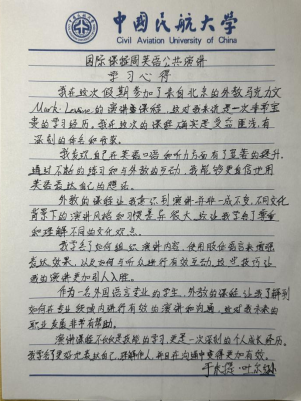 中国民航大学
Civil Aviation University of China
国际课程周英语公共演讲
学习心得
我在这次假期参加了来自北京的外教马克力文
Mark Levine的演讲课程，这对我来说是一次非常宝
贵的学习经历，我在这次的课程确实是受益匪浅，有
深刻的
我发现自己在英语口语和听力方面有了显著的提升，
通过不断的练习和与外教的互动，我能够更自信地用
英语表达自己的想法。
外教的课程让我意识到演讲并非一成不变，不同文化
背景下的演讲风格和习惯差异很大，这让我学会了尊重
和理解不同的文化观点。
我学会了如何组织演讲内容，使用肢体语言来增强
表达效果，以及如何与听众进行有效互动，这些技巧让
我的演讲更加引人入胜。
作为一名外国语言专业的学生，外教的课程，让我了解到
如何在专业领域内进行有效的演讲和沟通，这对我未来的
职业发展非常有帮助。
演讲课程不仅仅是技能的学习，更是一次深刻的个人成长经历。
我学会了更好地表达自己，理解他人，并且在沟通中变得更加有效。